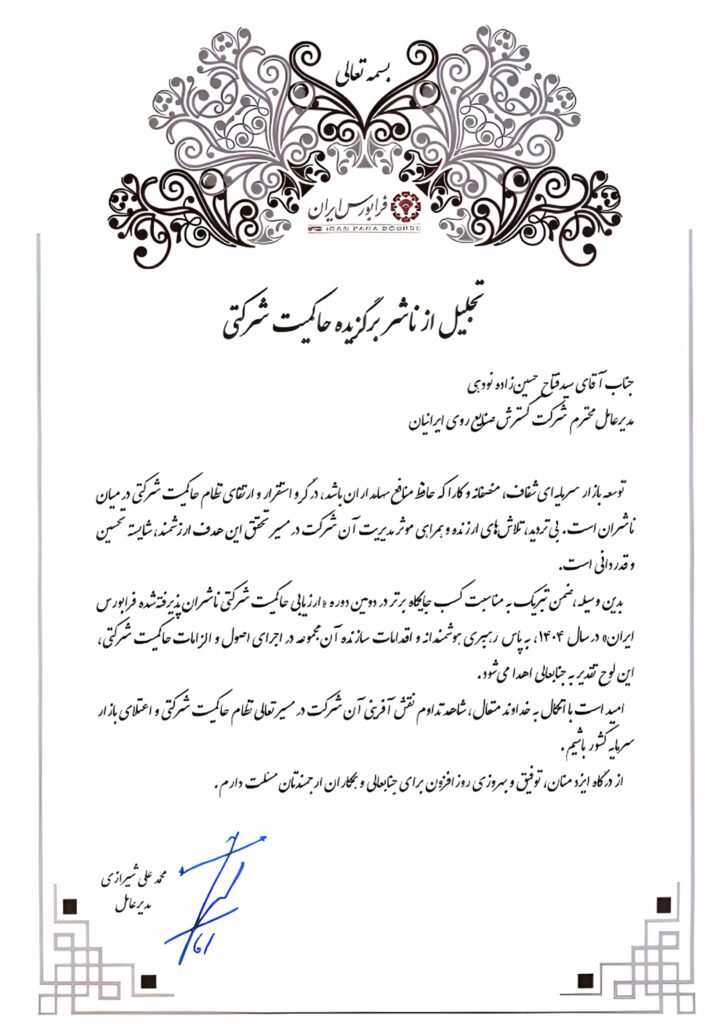 بسمه تعالی
فرابورس ایران
IRAN FARA BOURSE
تجلیل از ناشر برگزیده حاکمیت شرکتی
جناب آقای سید فتاح حسین‌زاده نودهی
مدیرعامل محترم شرکت گسترش صنایع روی ایرانیان
توسعه بازار سرمایه‌ای شفاف، منصفانه و کارا که حافظ منافع سهامداران باشد، در گرو استقرار و ارتقای نظام حاکمیت شرکتی در میان
ناشران است. بی‌تردید، تلاش‌های ارزنده و همراهی موثر مدیریت آن شرکت در مسیر تحقق این هدف ارزشمند، شایسته تحسین
و قدردانی است.
بدین وسیله، ضمن تبریک به مناسبت کسب جایگاه برتر در دومین دوره «ارزیابی حاکمیت شرکتی ناشران پذیرفته‌شده فرابورس
ایران» در سال ۱۴۰۴، به پاس رهبری هوشمندانه و اقدامات سازنده آن مجموعه در اجرای اصول و الزامات حاکمیت شرکتی،
این لوح تقدیر به جنابعالی اهدا می‌شود.
امید است با اتکال به خداوند متعال، شاهد تداوم نقش آفرینی آن شرکت در مسیر تعالی نظام حاکمیت شرکتی و اعتلای بازار
سرمایه کشور باشیم.
از درگاه ایزد منان، توفیق و بهروزی روزافزون برای جنابعالی و همکاران ارجمندتان مسئلت دارم.
محمد علی شیرازی
مدیرعامل